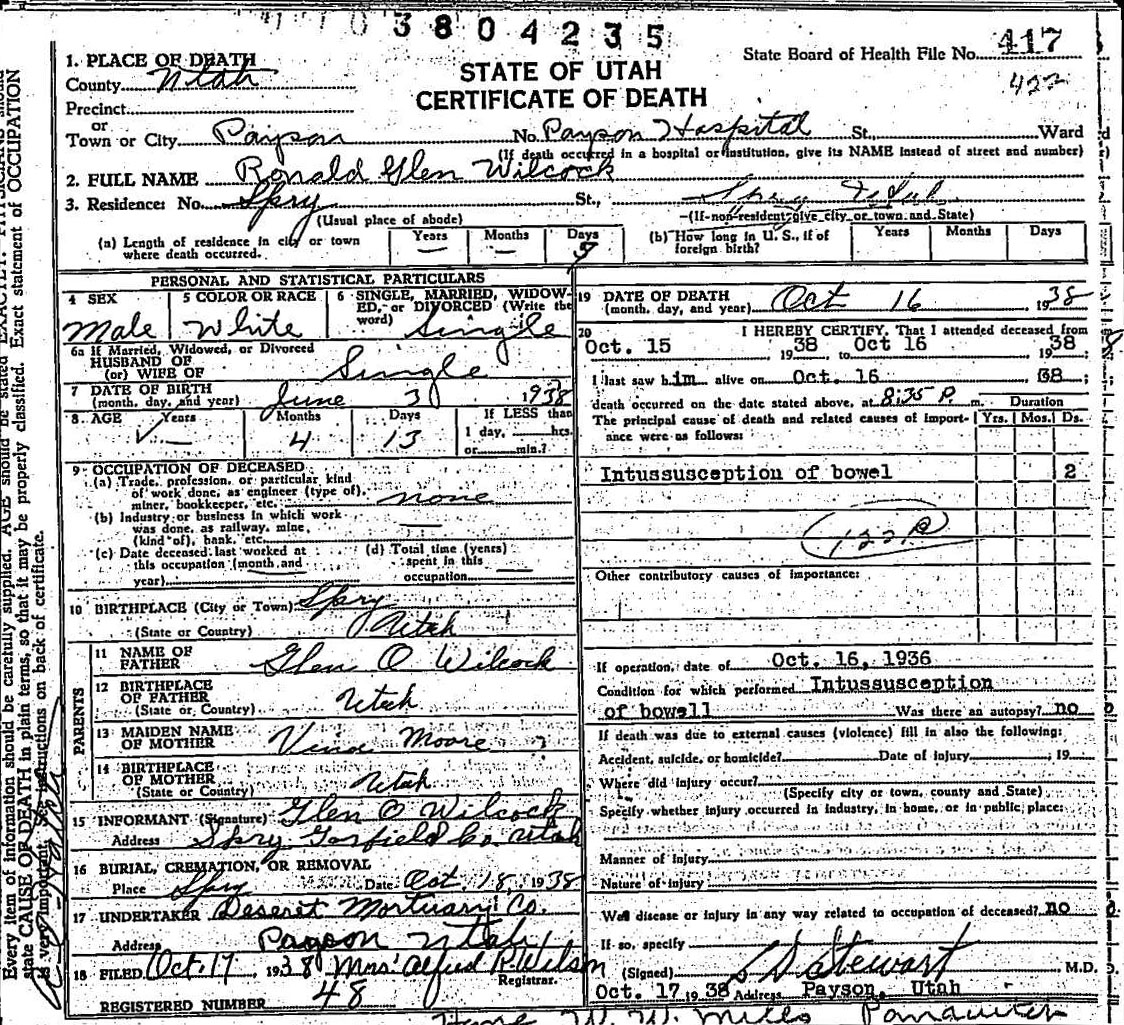 3804235
State Board of Health File No. 417
422
STATE OF UTAH
CERTIFICATE OF DEATH
1. PLACE OF DEATH
County Utah
Precinct
or
Town or City Payson No. Payson Hospital St., Ward
(If death occurred in a hospital or institution, give its NAME instead of street and number)
2. FULL NAME Ronald Glen Wilcock
3. Residence: No. Spry St., Spry Utah
(Usual place of abode) (If non-resident give city or town and State)
(a) Length of residence in city or town where death occurred. Years — Months — Days
(b) How long in U. S., if of foreign birth? Years Months Days
PERSONAL AND STATISTICAL PARTICULARS
4 SEX Male
5 COLOR OR RACE White
6 SINGLE, MARRIED, WIDOWED, or DIVORCED (Write the word) Single
6a If Married, Widowed, or Divorced
HUSBAND OF
(or) WIFE OF Single
7 DATE OF BIRTH
(month, day, and year) June 3 1938
8 AGE Years — Months 4 Days 13 If LESS than 1 day, hrs. or min.?
9 OCCUPATION OF DECEASED
(a) Trade, profession, or particular kind
of work done, as engineer (type of),
miner, bookkeeper, etc. none
(b) Industry or business in which work
was done, as railway, mine,
(kind of), bank, etc. —
(c) Date deceased last worked at
this occupation (month and
year)
(d) Total time (years)
spent in this
occupation —
10 BIRTHPLACE (City or Town) Spry
(State or Country) Utah
PARENTS
11 NAME OF
FATHER Glen O Wilcock
12 BIRTHPLACE
OF FATHER
(State or Country) Utah
13 MAIDEN NAME
OF MOTHER Vina Moore
14 BIRTHPLACE
OF MOTHER
(State or Country) Utah
15 INFORMANT (Signature) Glen O Wilcock
Address Spry Garfield Co. Utah
16 BURIAL, CREMATION, OR REMOVAL
Place Spry Date Oct. 18, 1938
17 UNDERTAKER Deseret Mortuary Co.
Address Payson Utah
18 FILED Oct. 17, 1938 Mrs Alfred R. Wilson
Registrar.
REGISTERED NUMBER 48
19 DATE OF DEATH
(month, day, and year) Oct 16 1938
20 I HEREBY CERTIFY, That I attended deceased from
Oct. 15 1938 to Oct 16 1938;
I last saw him alive on Oct. 16 38;
death occurred on the date stated above, at 8:35 P. m. Duration
The principal cause of death and related causes of importance were as follows: Yrs. Mos. Ds.
Intussusception of bowel 2
Other contributory causes of importance:
If operation, date of Oct. 16, 1936
Condition for which performed Intussusception
of bowell Was there an autopsy? no
If death was due to external causes (violence) fill in also the following:
Accident, suicide, or homicide? Date of injury 19
Where did injury occur?
(Specify city or town, county and State)
Specify whether injury occurred in industry, in home, or in public place:
Manner of injury
Nature of injury
Was disease or injury in any way related to occupation of deceased? no
If so, specify
(Signed) Stewart M.D.
Oct. 17 1938 Address Payson, Utah
W. W. Mills
Every item of information should be carefully supplied. AGE should be stated EXACTLY.
state CAUSE OF DEATH in plain terms, so that it may be properly classified. Exact statement of OCCUPATION
is very important. See instructions on back of certificate.